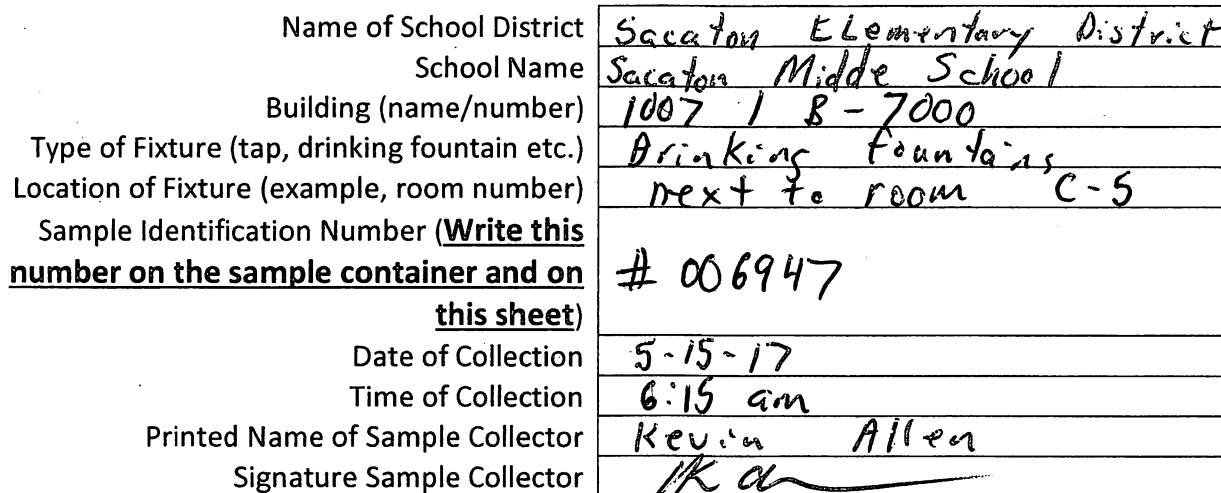 Name of School District Sacaton Elementary District
School Name Sacaton Midde School
Building (name/number) 1007 / B - 7000
Type of Fixture (tap, drinking fountain etc.) Drinking fountains
Location of Fixture (example, room number) next to room C-5
Sample Identification Number (Write this
number on the sample container and on # 006947
this sheet)
Date of Collection 5-15-17
Time of Collection 6:15 am
Printed Name of Sample Collector Kevin Allen
Signature Sample Collector